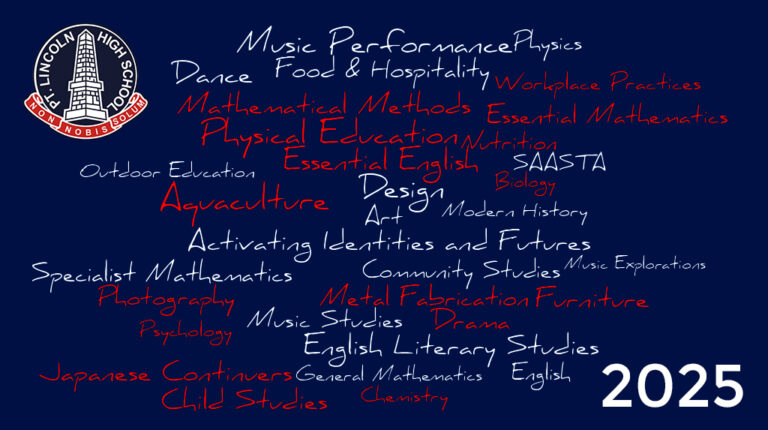 PT. LINCOLN HIGH SCHOOL
NON NOBIS SOLUM
Music Performance Physics
Dance Food & Hospitality
Workplace Practices
Mathematical Methods Essential Mathematics
Physical Education Nutrition
Essential English SAASTA
Outdoor Education Biology
Aquaculture Design
Art Modern History
Activating Identities and Futures
Specialist Mathematics Community Studies Music Explorations
Photography Metal Fabrication Furniture
Psychology Music Studies Drama
English Literary Studies
Japanese Continuers General Mathematics English
Child Studies Chemistry
2025